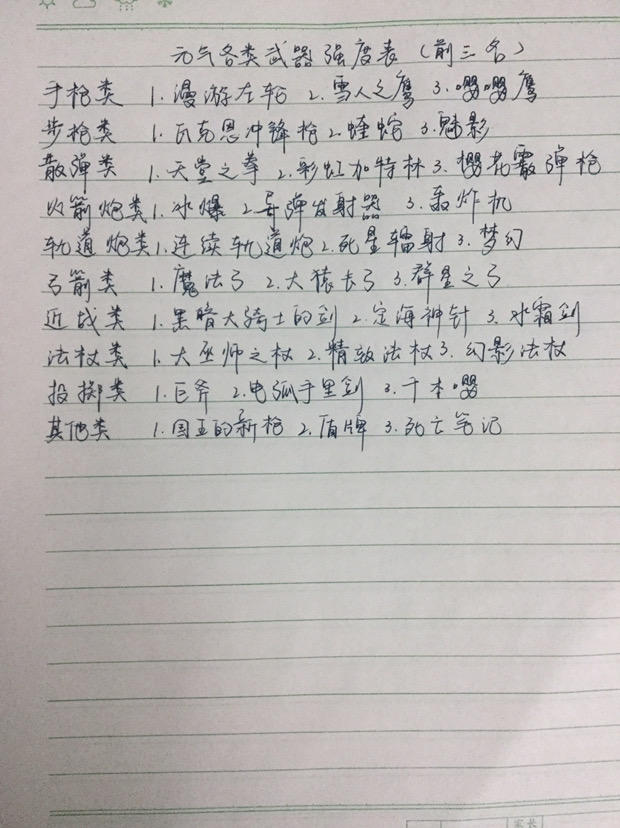 元气各类武器强度表（前三名）
手枪类 1.漫游左轮 2.雪人之鹰 3.嘤嘤鹰
步枪类 1.瓦克恩冲锋枪 2.蝰蛇 3.魅影
散弹类 1.天堂之拳 2.彩虹加特林 3.樱花霰弹枪
火箭炮类 1.冰爆 2.导弹发射器 3.轰炸机
轨道炮类 1.连续轨道炮 2.死星辐射 3.梦幻
弓箭类 1.魔法弓 2.大猿长弓 3.群星之弓
近战类 1.黑暗大骑士的剑 2.定海神针 3.冰霜剑
法杖类 1.大巫师之杖 2.精致法杖 3.幻影法杖
投掷类 1.巨斧 2.电弧手里剑 3.千本嘤
其他类 1.国王的新枪 2.盾牌 3.死亡笔记
家长